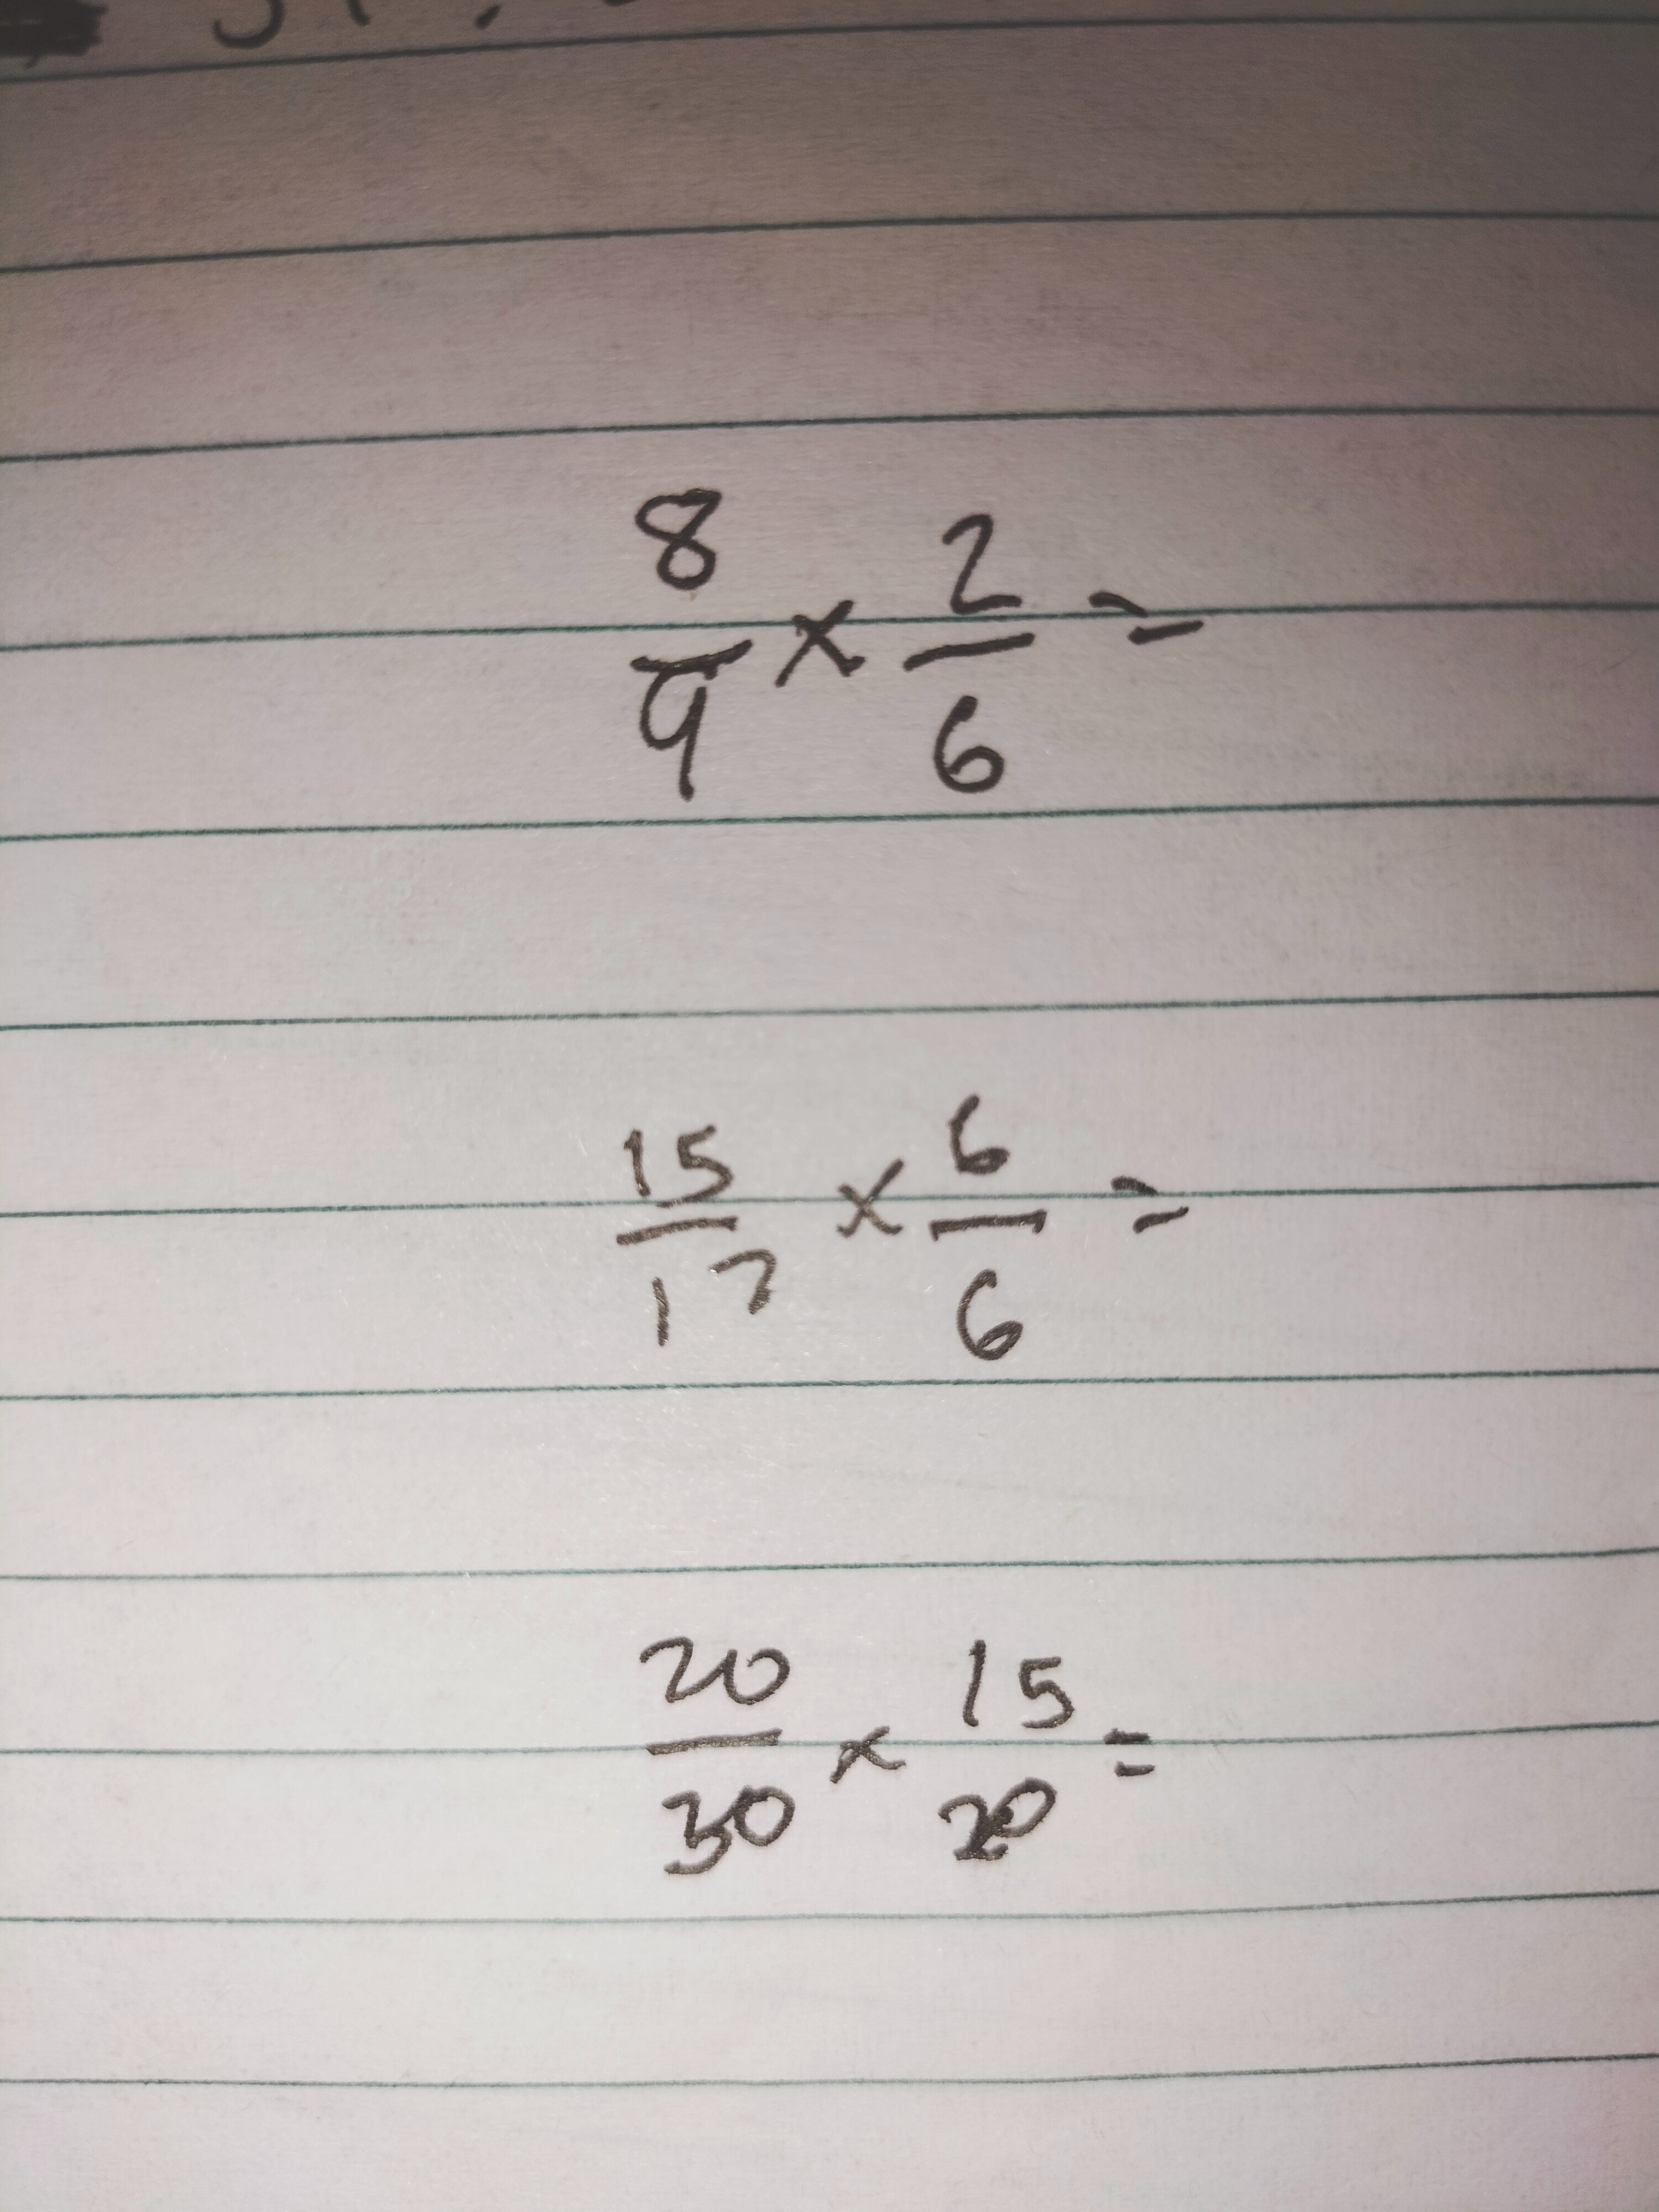 8/9 × 2/6 =
15/17 × 6/6 =
20/30 × 15/20 =